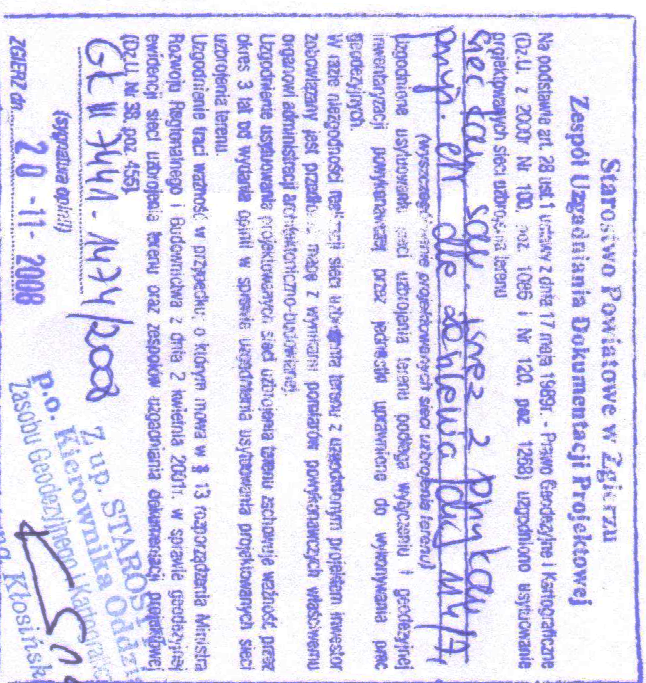 Starostwo Powiatowe w Zgierzu
Zespół Uzgadniania Dokumentacji Projektowej
Na podstawie art. 28 ust. 1 ustawy z dnia 17 maja 1989r. - Prawo Geodezyjne i Kartograficzne
(Dz.U. z 2000r Nr 100, poz. 1086 i Nr 120, poz. 1268) uzgodniono usytuowanie
projektowanych sieci uzbrojenia terenu
sieć kan. san. wraz z przykan.
przyp. en dla zasilania
(wyszczególnienie projektowanych sieci uzbrojenia terenu)
Uzgodnione usytuowanie sieci uzbrojenia terenu podlega wytyczeniu i geodezyjnej
inwentaryzacji powykonawczej przez jednostki uprawnione do wykonywania prac
geodezyjnych.
W razie niezgodności realizacji sieci uzbrojenia terenu z uzgodnionym projektem inwestor
zobowiązany jest przedłożyć mapę z wynikami pomiarów powykonawczych właściwemu
organowi administracji architektoniczno-budowlanej.
Uzgodnienie usytuowania projektowanych sieci uzbrojenia terenu zachowuje ważność przez
okres 3 lat od wydania opinii w sprawie uzgodnienia usytuowania projektowanych sieci
uzbrojenia terenu.
Uzgodnienie traci ważność w przypadku, o którym mowa w § 13 rozporządzenia Ministra
Rozwoju Regionalnego i Budownictwa z dnia 2 kwietnia 2001r. w sprawie geodezyjnej
ewidencji sieci uzbrojenia terenu oraz zespołów uzgadniania dokumentacji projektowej
(Dz.U. Nr 38, poz. 455).
GK III 7441-1474/2008
(sygnatura opinii)
ZGIERZ dn. 20 -11- 2008
Z up. STAROSTY
p.o. Kierownika Oddzia
Zasobu Geodezyjnego i Kartografic
Kłosińsk